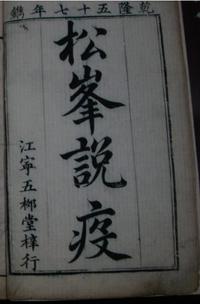 乾隆五十七年鐫
松峯說疫
江寧五柳堂梓行